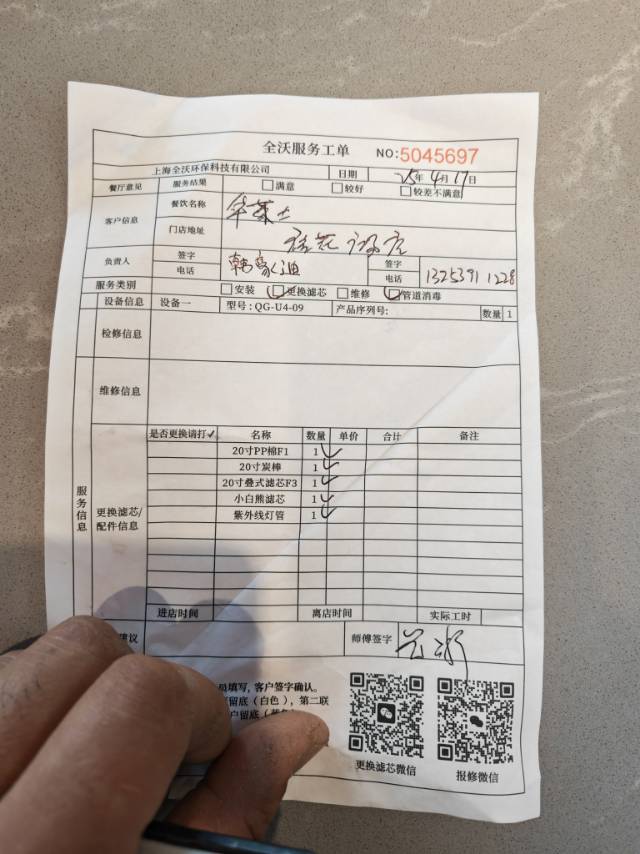 全沃服务工单 NO:5045697
上海全沃环保科技有限公司 日期 25年4月17日
餐厅意见 服务结果 □满意 □较好 □较差不满意
客户信息 餐饮名称 华莱士
门店地址
负责人 签字 签字
电话 电话 13253911228
服务类别 □安装 □更换滤芯 □维修 □管道消毒
设备信息 设备一 型号:QG-U4-09 产品序列号: 数量 1
检修信息
维修信息
服务信息
更换滤芯/配件信息
是否更换请打✓ 名称 数量 单价 合计 备注
20寸PP棉F1 1 ✓
20寸炭棒 1 ✓
20寸叠式滤芯F3 1 ✓
小白熊滤芯 1 ✓
紫外线灯管 1 ✓
进店时间 离店时间 实际工时
建议 师傅签字
填写,客户签字确认。
留底(白色),第二联
户留底
更换滤芯微信 报修微信